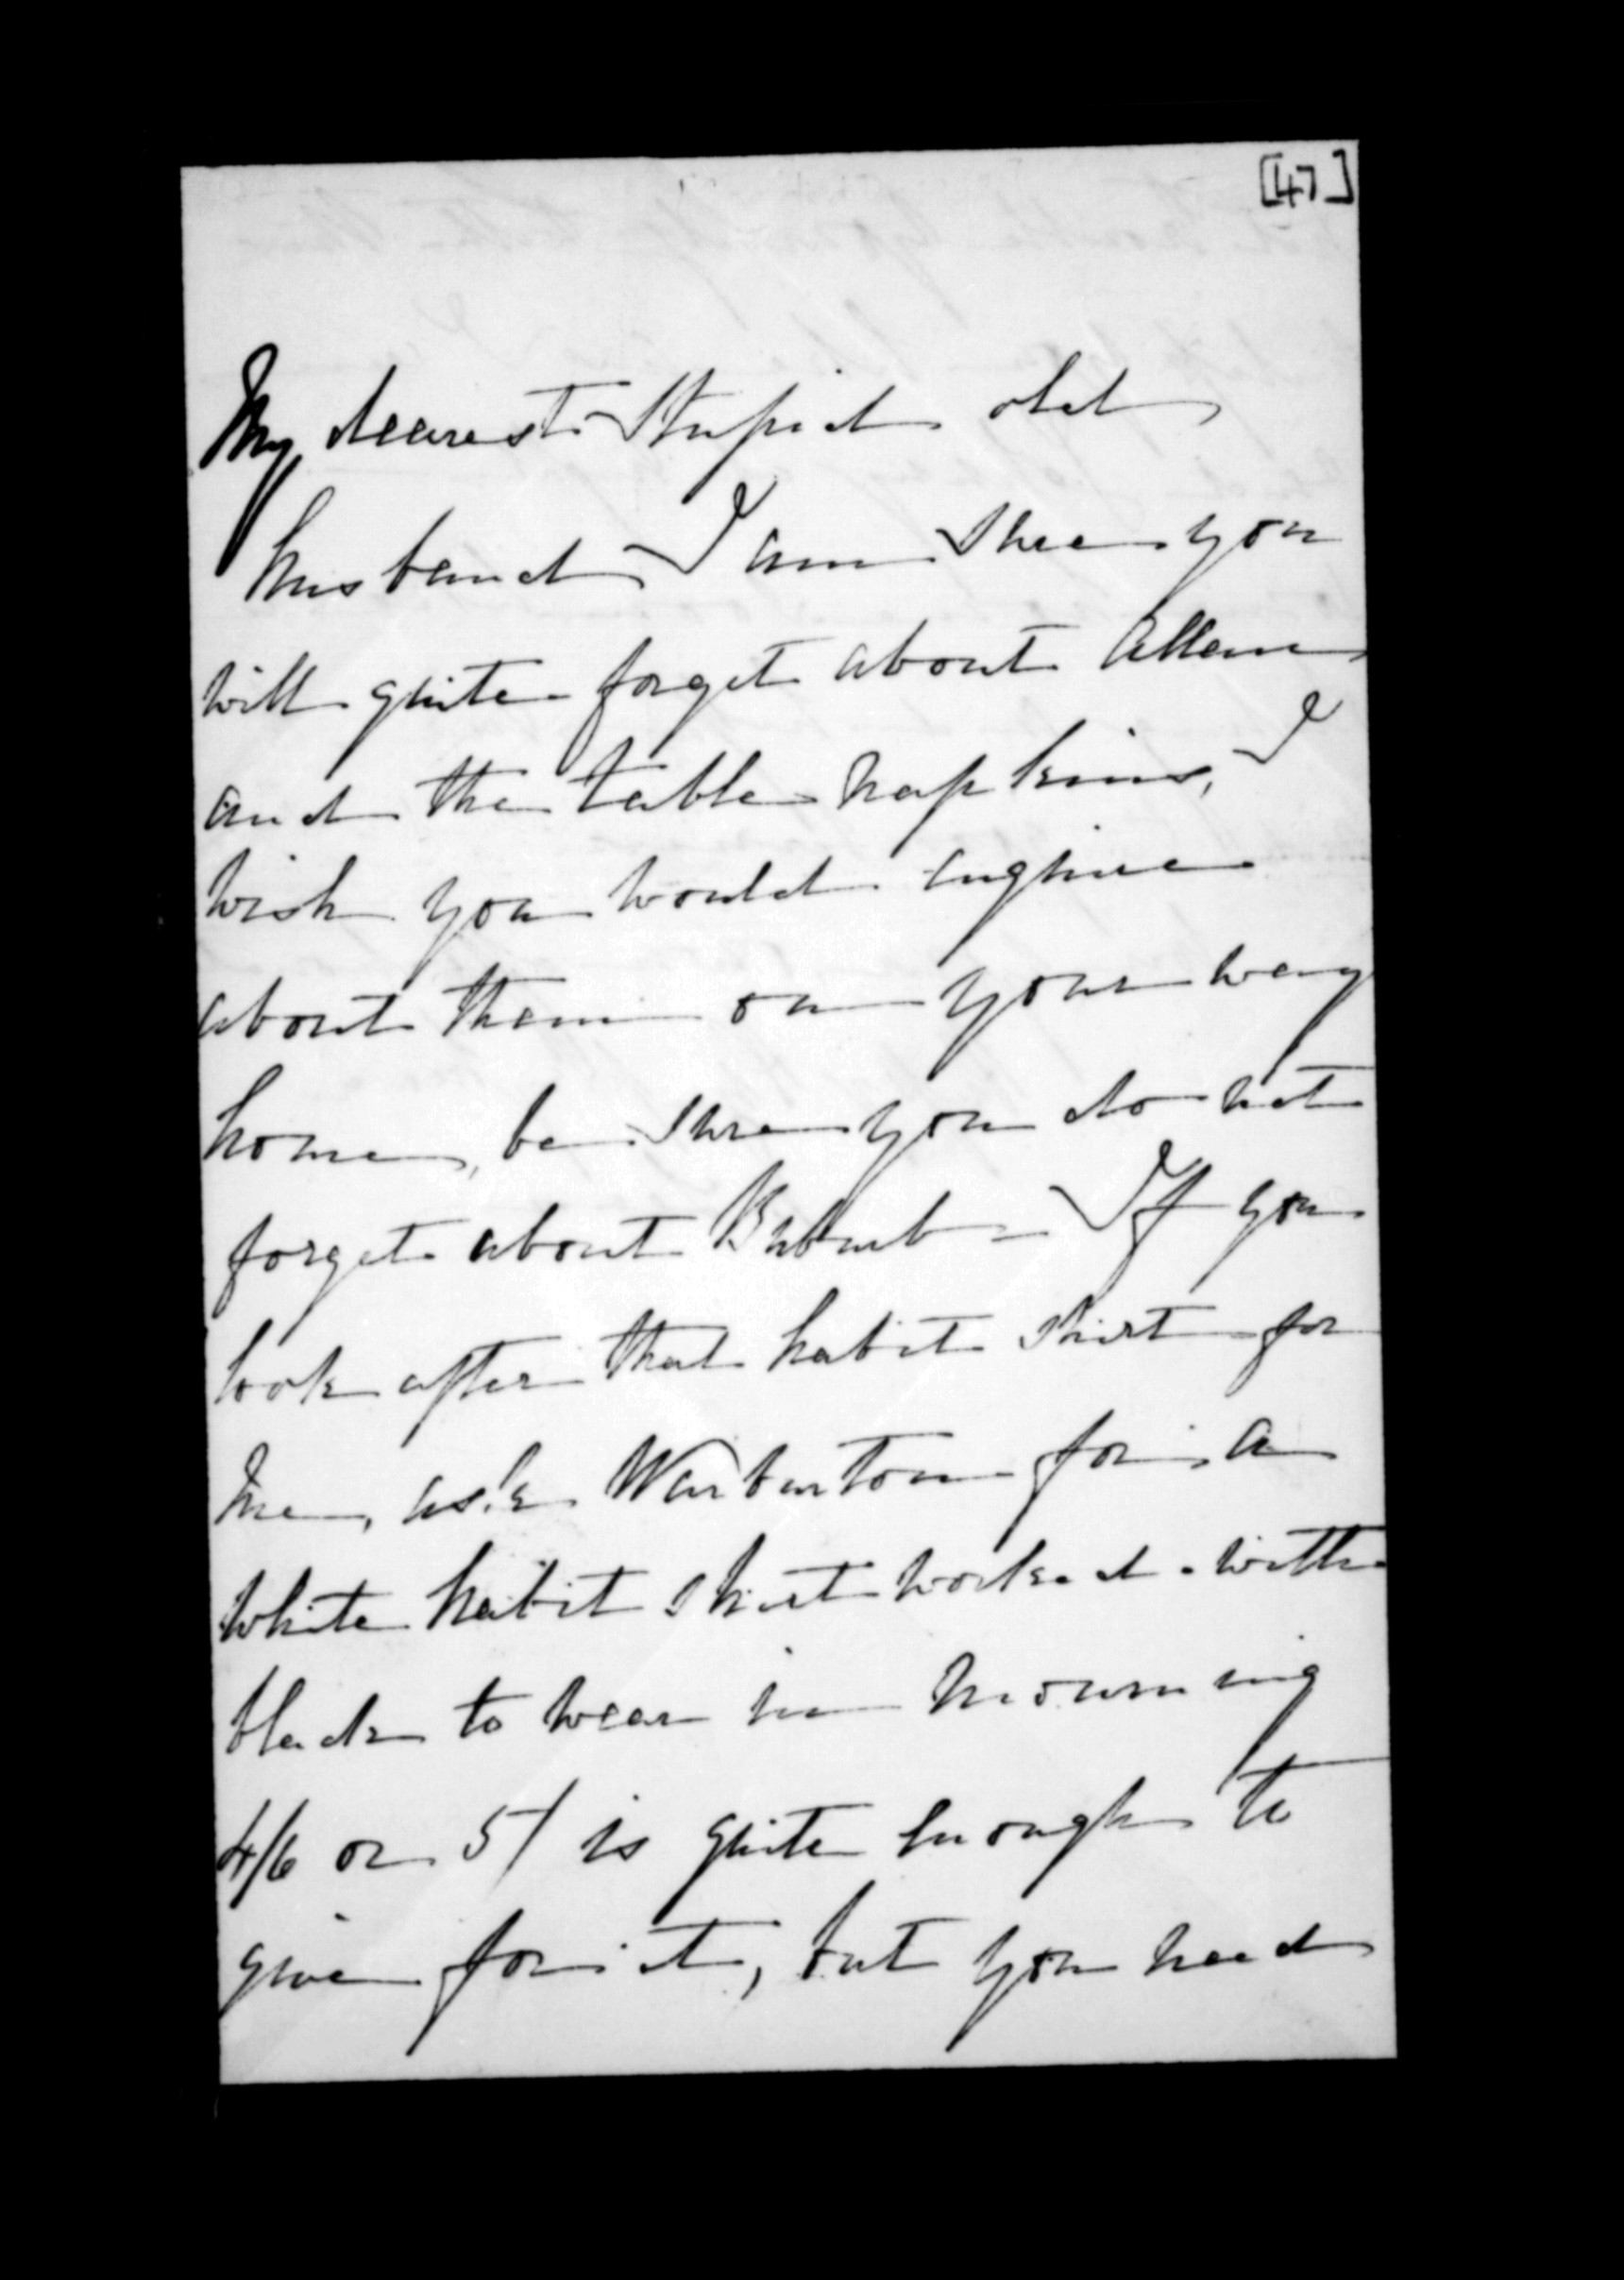 [47]
My dearest Stupid old
husband I am sure you
will quite forget about Allan
and the table napkins, I
wish you would enquire
about them on your way
home, be sure you do not
forget about - If you
look after that habit shirt for
me, ask Warburton for a
white habit shirt worked with
black to wear in mourning
4/6 or 5/ is quite enough to
give for it, but you need